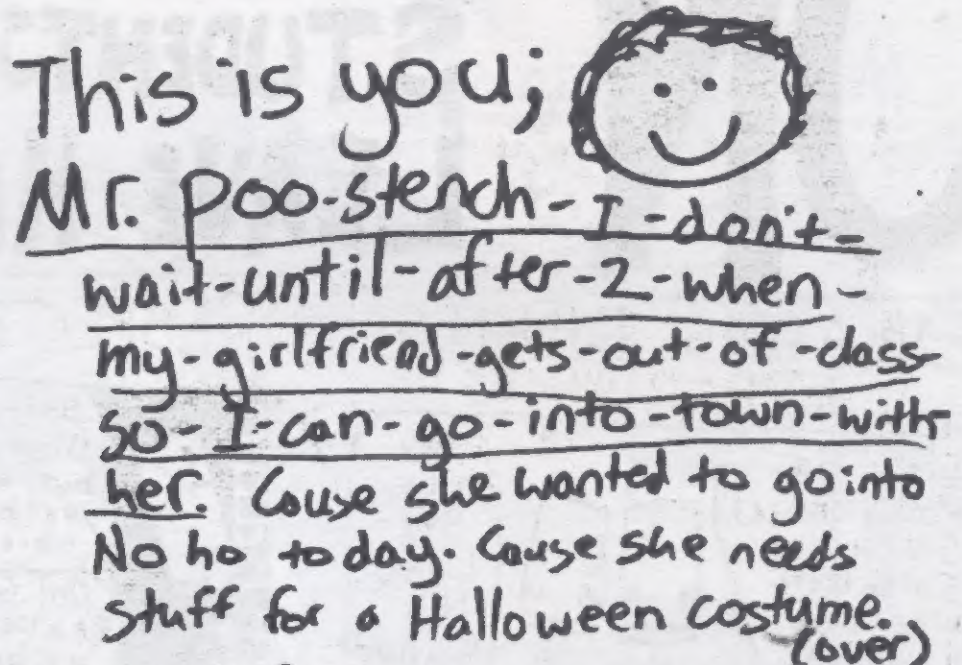 This is you;
Mr. Poo-stench-I-don't-
wait-until-after-2-when-
my-girlfriend-gets-out-of-class-
so-I-can-go-into-town-with-
her. Cause she wanted to go into
No ho today. Cause she needs
stuff for a Halloween costume.
(over)